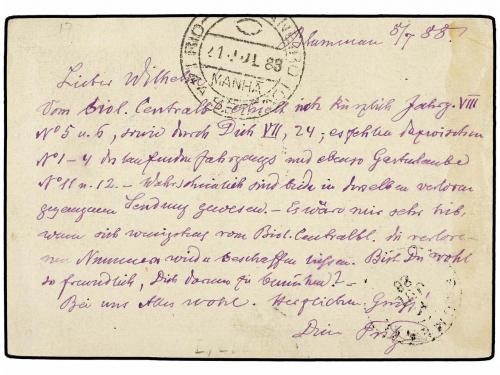 Blumenau 5/7 88.
Lieber Wilhelm
Vom Biol. Centralbl. erhielt ich kürzlich Jahrg. VIII
Nº 5 u. 6, sowie durch Dich VII, 24; es fehlen dazwischen
Nº 1-4 des laufenden Jahrgangs und ebenso Gartenlaube
Nº 11 u. 12. – Wahrscheinlich sind beide in derselben verloren
gegangenen Sendung gewesen. – Es wäre mir sehr lieb,
wenn sich wenigstens vom Biol. Centralbl. die verlore-
nen Nummern wieder beschaffen liessen. Bist Du wohl
so freundlich, Dich darum zu bemühen? –
Bei uns Alles wohl. Herzlichen Gruss
Dein Fritz
RIO
21 JUL 88
MANHÃ